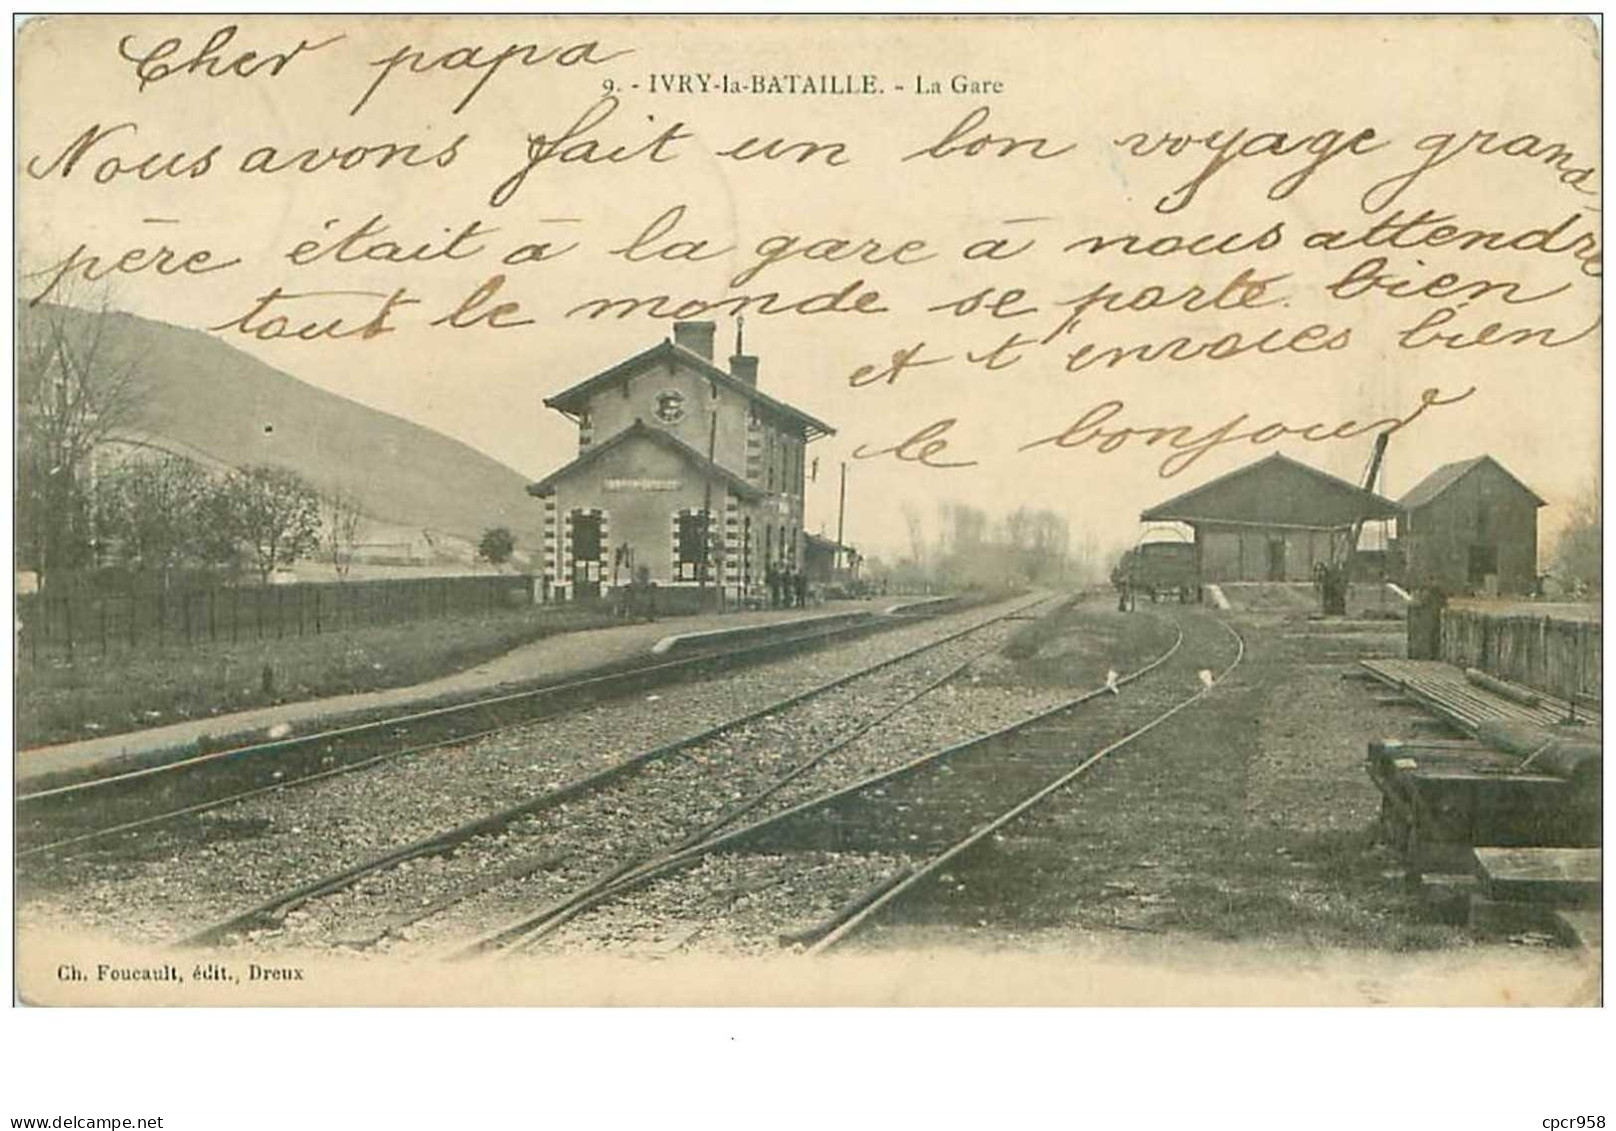 Cher papa
9. - IVRY-la-BATAILLE. - La Gare
Nous avons fait un bon voyage grand
père était à la gare à nous attendre
tout le monde se porte bien
et t'envoies bien
le bonjour
Ch. Foucault, édit., Dreux
www.delcampe.net
cpcr958